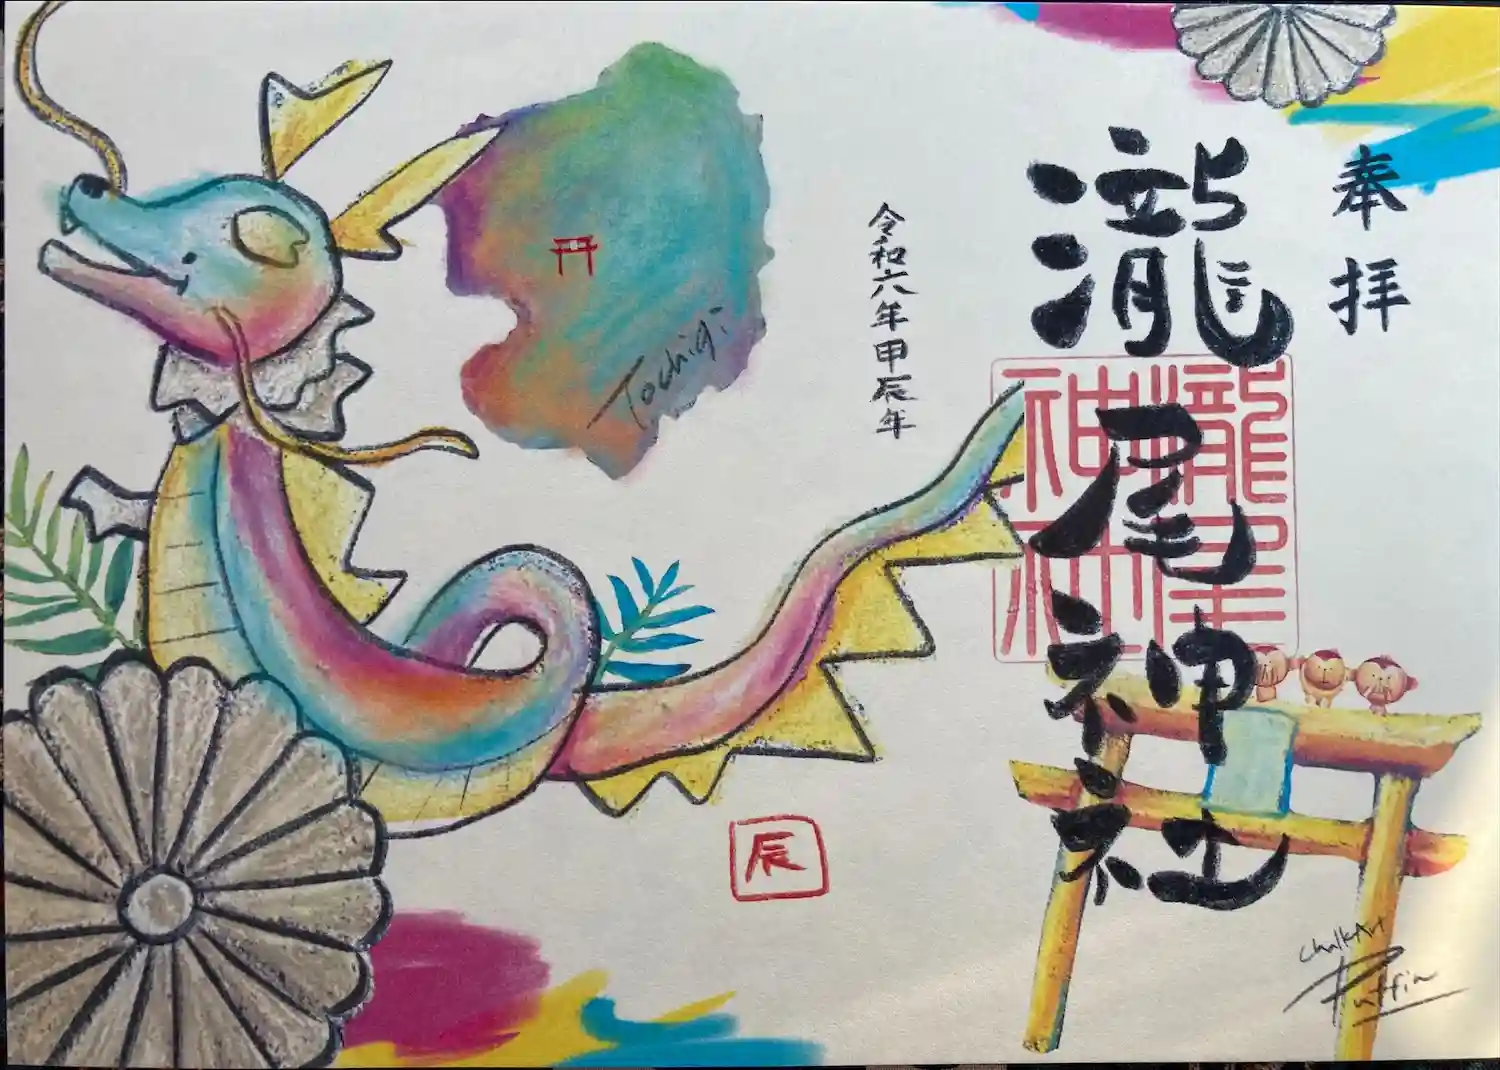 奉拝
瀧尾神社
瀧尾
神社
令和六年甲辰年
Tochigi
辰
ChalkArt
Puffin